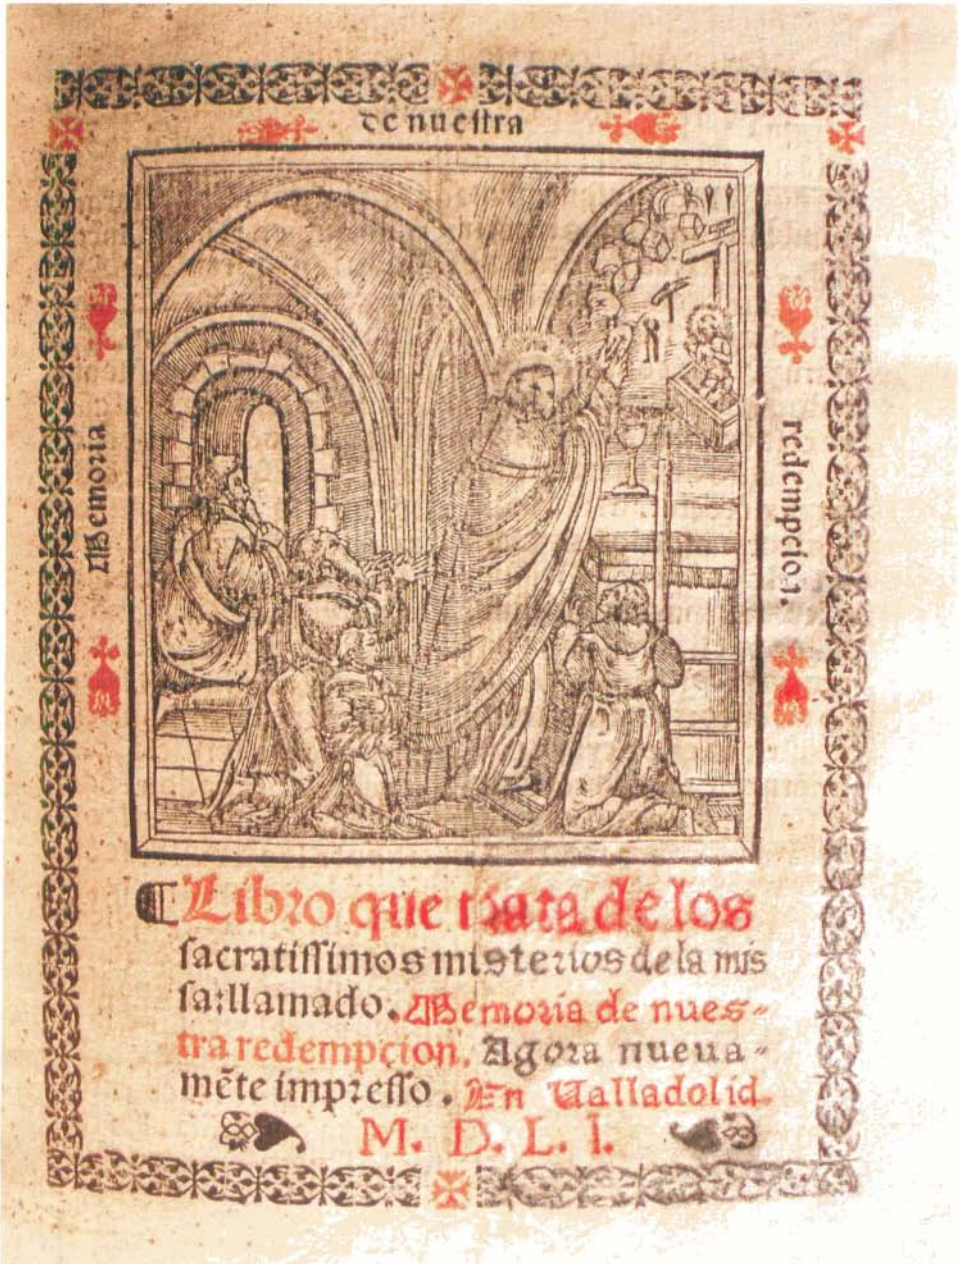 Memoria
de nuestra
redempcion.
¶ Libro que trata de los
sacratissimos misterios de la mis
sa: llamado. Memoria de nues-
tra redempcion. Agora nueua-
mẽte impresso. En Valladolid.
M. D. L. I.